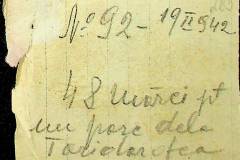 No 92 - 19 II 942
48 Mărci pt
un porc dela